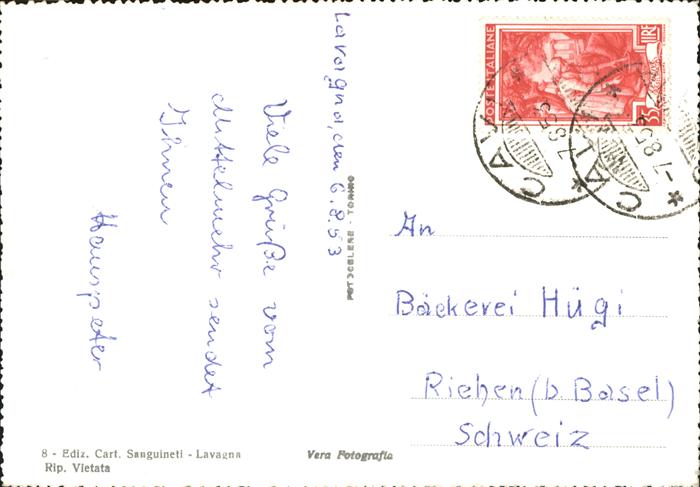 Lavagna, den 6.8.53
Viele Grüße vom
Mittelmehr sendet
Ihnen
Hanspeter
FOTOCELERE - TORINO
POSTE ITALIANE
LIRE
35
An
Bäckerei Hügi
Riehen (b. Basel)
Schweiz
8 - Ediz. Cart. Sanguineti - Lavagna
Rip. Vietata
Vera Fotografia